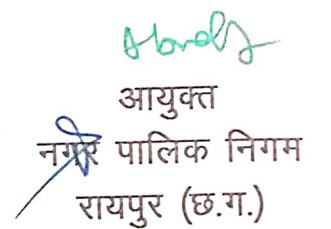 आयुक्त
नगर पालिक निगम
रायपुर (छ.ग.)